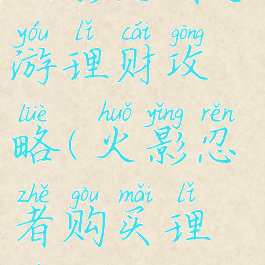 yóu lǐ cái gōng
游理财攻
lüè huǒ yǐng rěn
略(火影忍
zhě gòu mǎi lǐ
者购买理